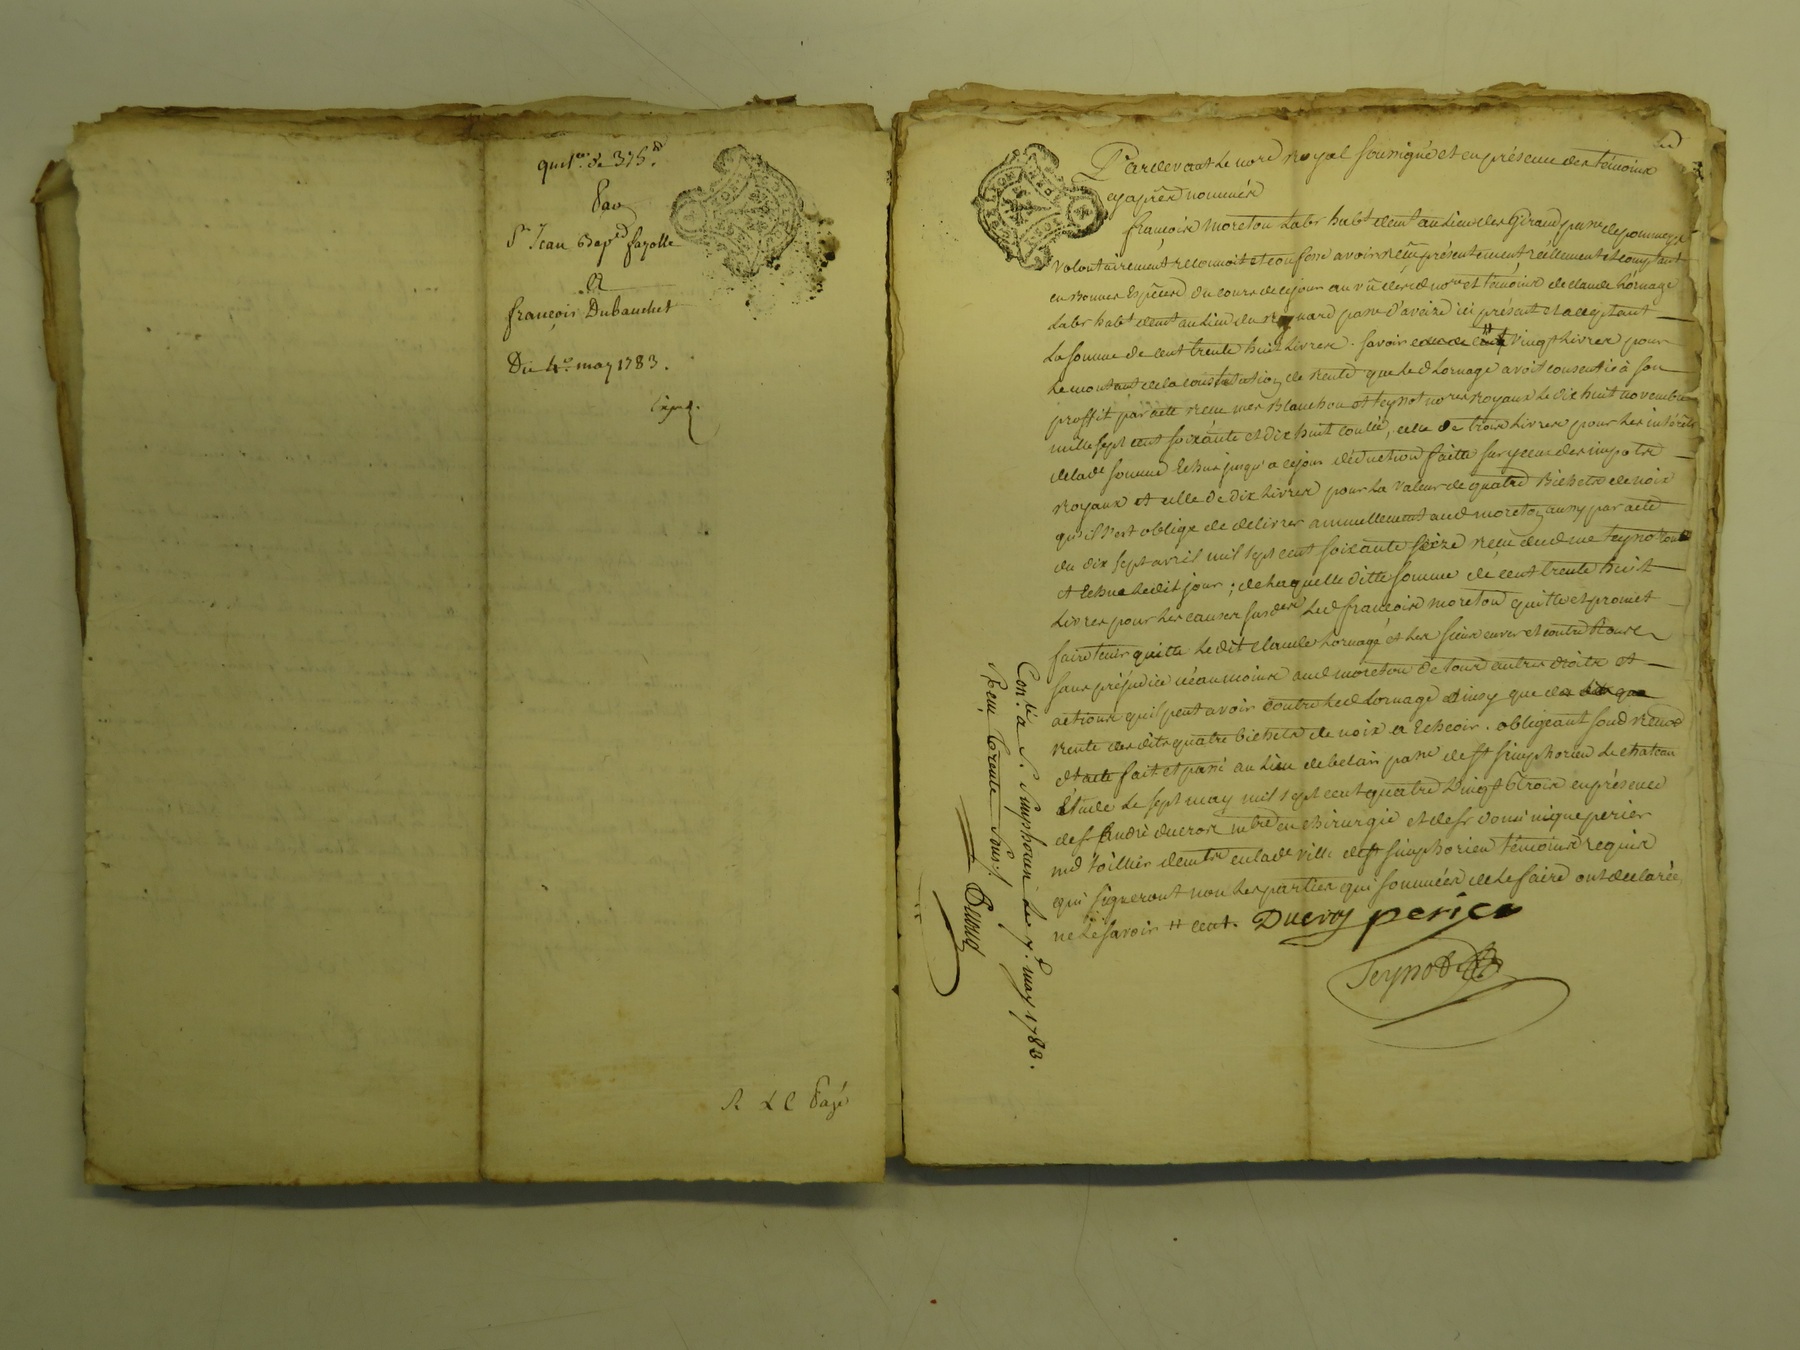 quit.ce de 375.lt
Par
Sr Jean Bap.te fayolle
A
françois Dubanchet
Du 4.e may 1783.
Exp.é
R L C Payé
Pardevant le nore Royal soussigné et en présence des témoins
cy après nommés
françois moreton labr habt demt au lieu des Giraud parre de pommeys
volontairement reconnoit et confesse avoir reçu présentement réelement et comptant
en Bonnes Espèces du cours de ce jour au vû desd nore et témoins de claude hornage
labr habt demt au lieu du Reynard parre d'aveize ici présent et acceptant
la somme de cent trente huit livres . savoir # vingt livres pour
le montant de la constitution de rente que led hornage avoit consentie à son
proffit par acte reçu mes Blanchon et teynot nores royaux le dix huit novembre
mille sept cent soixante et dix huit conllé, celle de trois livres pour les intérêts
de lade somme Echus jusqu'a ce jour déduction faitte sur yceux des impots
royaux et celle de dix livres pour la valeur de quatre Bichets de noix
qu'il s'est obligé de delivrer annuellement aud moreton aussy par acte
du dix sept avril mil sept cent soixante seize reçu dud me teynot conllé
et Echue ledit jour ; de laquelle ditte somme de cent trente huit
livres pour les causes susdes led françois moreton quitte et promet
faire tenir quitte ledit claude hornage et les siens envers et contre tous
sans préjudice néanmoins aud moreton de tous autres droits et
actions qu'il peut avoir contre led hornage ainsy que de la
rente desdits quatre bichets de noix a Echeoir . obligeant soud Renond
et acte fait et passé au lieu de belair parre de st simphorien le chateau
Étude le sept may mil sept cent quatre vingt trois en présence
de sr André ducros mtre en chirurgie et de sr dominique perier
md toillier demts en lade ville de st simphorien témoins requis
qui signeront non les parties qui sommées de le faire ont declaré
ne le savoir # cent. Ducros perier
Teynot
Conllé a S. Simphorien le 7. may 1783.
Reçu trente sous.